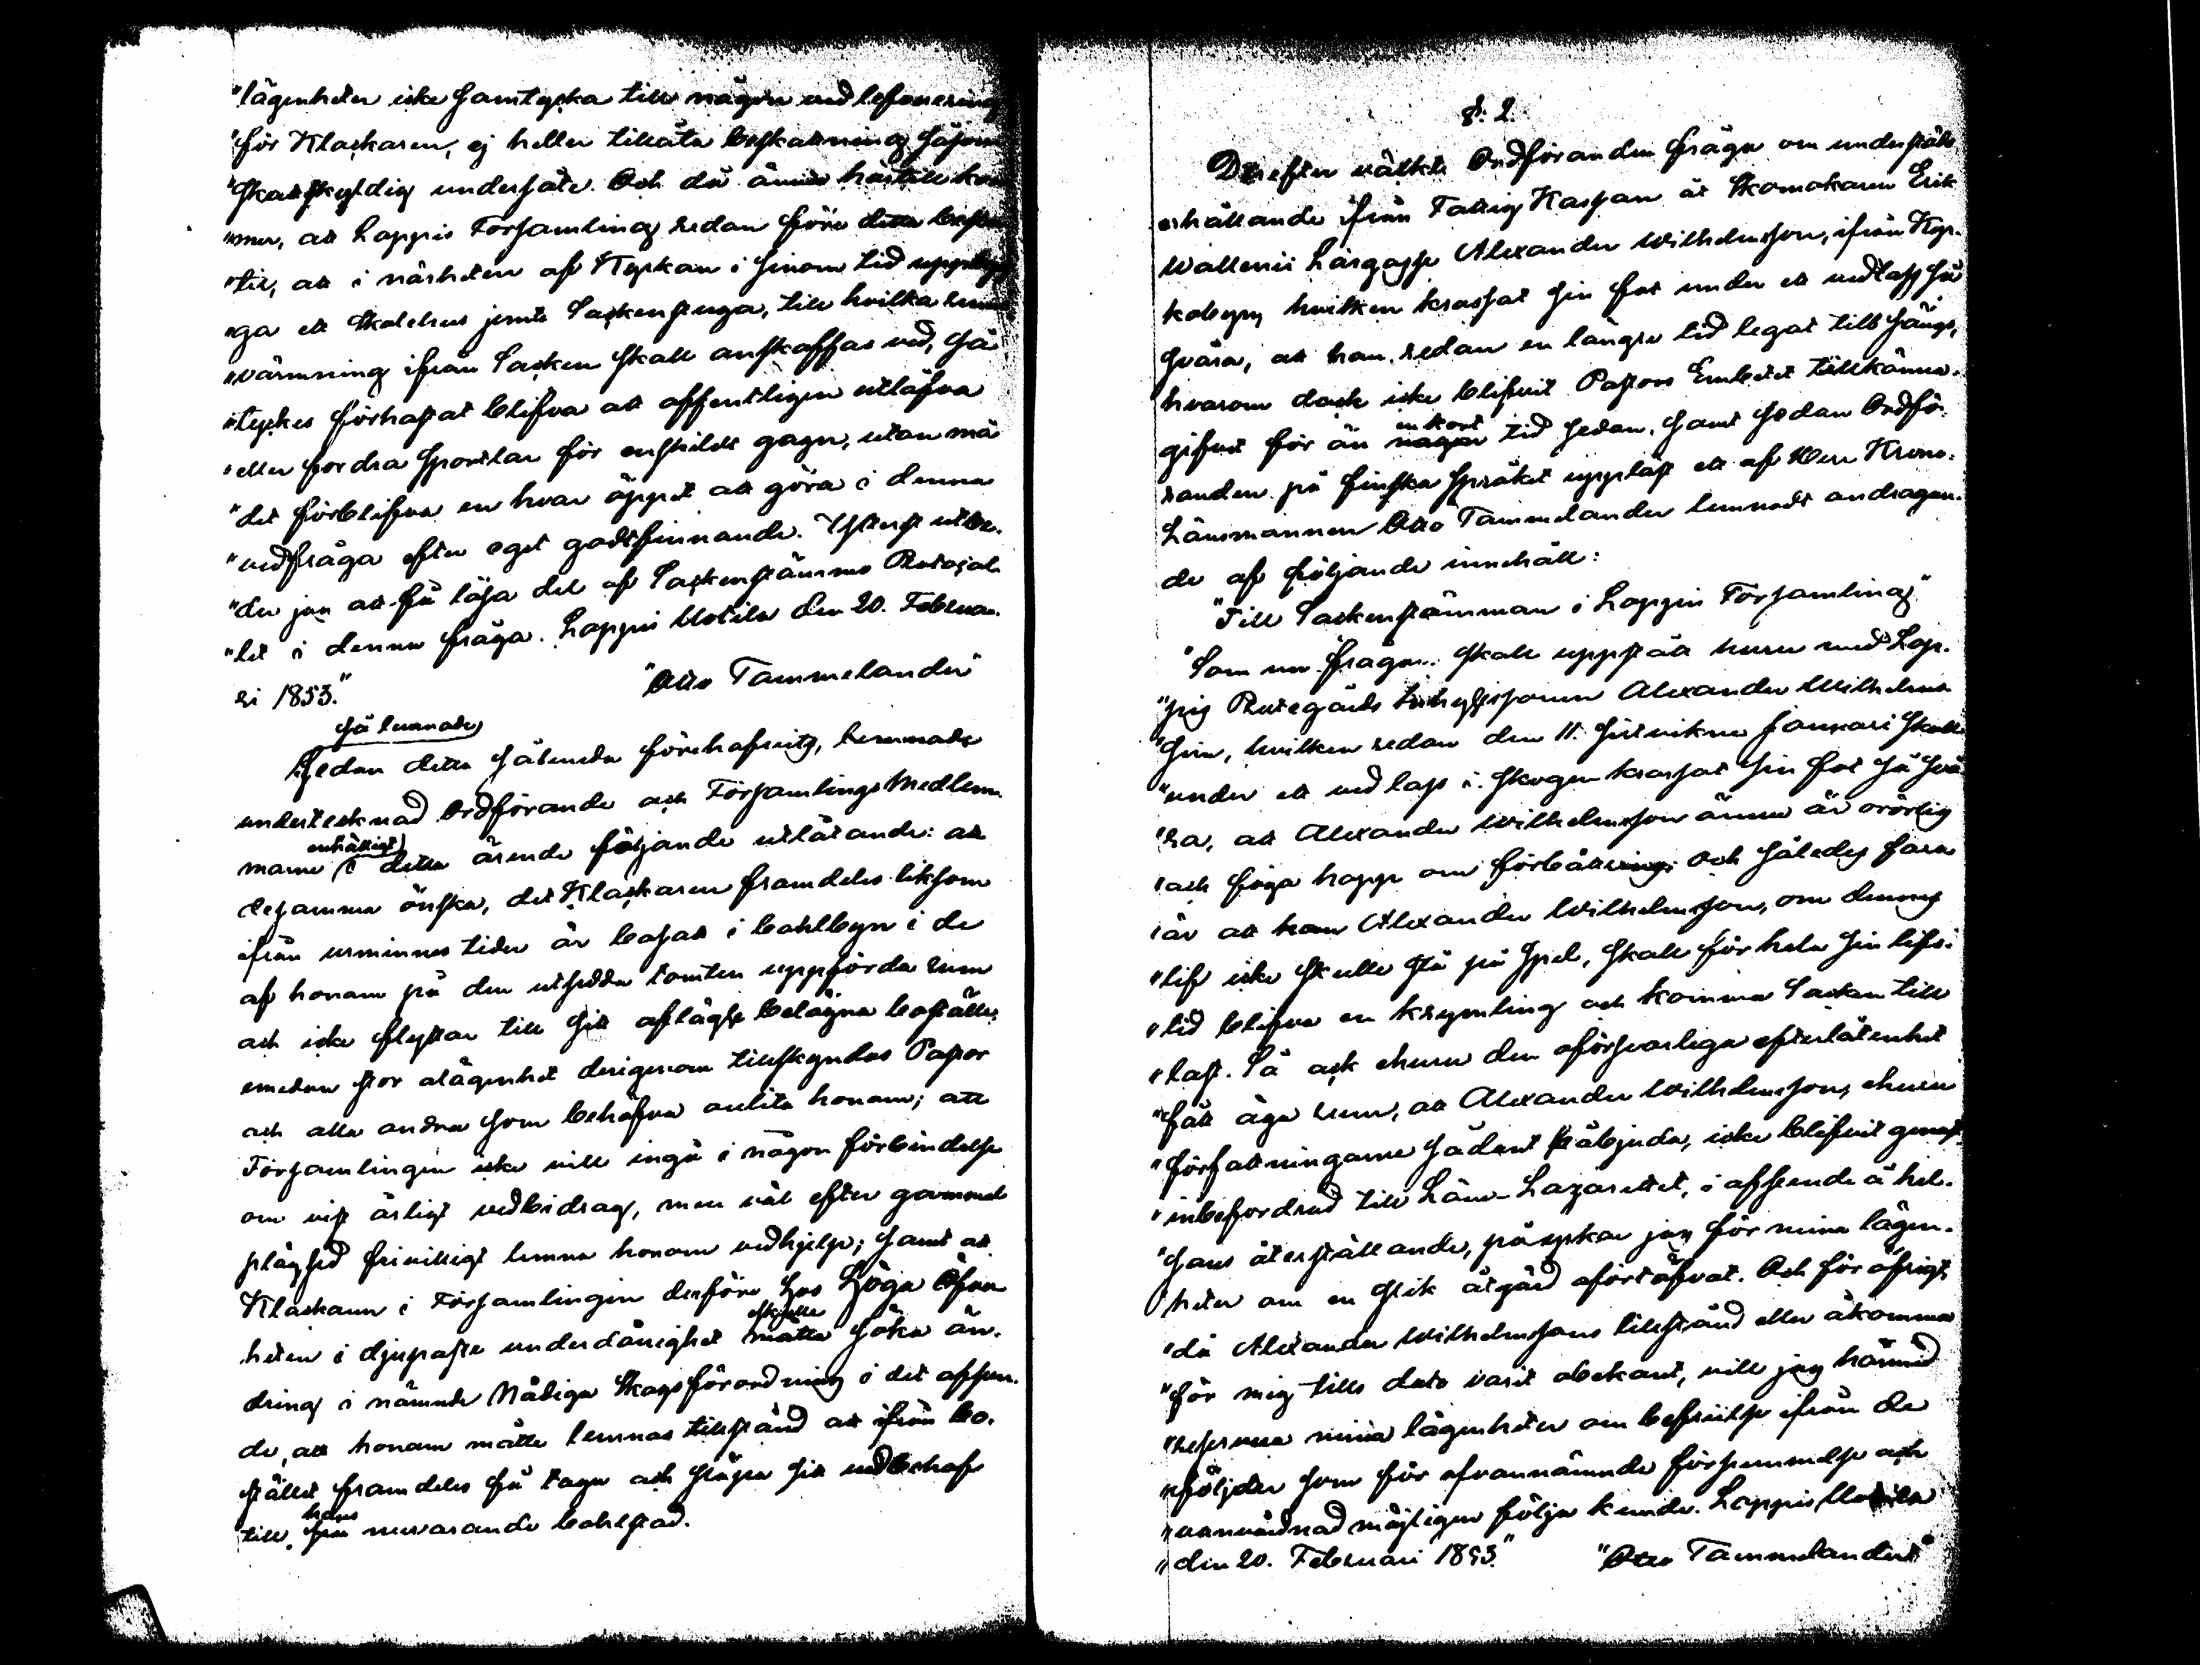 "lägenheter icke samtycka till någon vedlefverering
"för Klockaren, ej heller tillåta beskattning såsom
"skattskyldig undersåte. Och då ännu härtill kom
"mer, att Loppis Församling redan före detta
"tit, att i närheten af Kyrkan i sinom tid uppbygg
"ga ett Skolehus jemte Sockenstuga, till hvilka rums
"värmning ifrån Socken skall anskaffas ved, så
"tyckes förhastat blifva att offentligen utlåfva
"eller fordra Sportlar för enskildt gagn, utan må
"det förblifva en hvar öppet att göra i denna
"vedfråga efter eget godtfinnande. Ytterst utbe-
"der jag att få lösa del af Sockenstämmo Protocol-
"let i denna fråga. Loppis Uotila den 20. Februa-
ri 1853." "Otto Tammelander"
så lemnade
Sedan detta sålunda förehafvits, lemnade
undertecknad Ordförande och Församlings Medlem-
marne enhälligt i detta ärende följande utlåtande: att
desamma önska, det Klockaren framdeles liksom
ifrån urminnes tider är bosatt i bohlbyn i de
af honom på den utsedda tomten uppförda rum
och icke flyttar till sitt aflägse belägna boställe,
emedan stor olägenhet derigenom tillskyndas Pastor
och alla andra som behöfva anlita honom; att
Församlingen icke vill ingå i någon förbindelse
om visst årligt vedbidrag, men väl efter gammal
plägsed frivilligt lemna honom vedhjelp; samt att
Klockaren i Församlingen derföre hos Höga Öfver
heten i djupaste underdånighet måtte söka än-
dring i nämnde Nådiga Skogsförordning i det afseen-
de, att honom måtte lemnas tillstånd att ifrån bo-
stället framdeles få taga och släpa sitt vedbehof
till hans nuvarande bohlstad.
§. 2.
Derefter väckte Ordföranden fråga om understöds
erhållande ifrån Fattig Kassan åt Skomakaren Erik
Wallenii Lärgosse Alexander Wilhelmsson, ifrån Kyr-
kobyn, hvilken krossat sin fot under ett vedlass så
svåra, att han redan en längre tid legat till sängs,
hvarom dock icke blifvit Pastors Embetet tillkänna-
gifvet för än en kort tid sedan, samt sedan Ordfö-
randen på finska språket uppläst ett af Herr Krono-
Länsmannen Otto Tammelander lemnadt andragan-
de af följande innehåll:
"Till Sockenstämman i Loppis Församling"
"Som nu frågan skall uppstått huru med Lop-
"pis Prestegårds Inhysessonen Alexander Wilhelms
"son, hvilken redan den 11. sistvikne Januari skall
"under ett vedlass i skogen krossat sin fot så svå
"ra, att Alexander Wilhelmsson ännu är orörlig
"och föga hopp om förbättring; Och således fara
"är att han Alexander Wilhelmsson, om dennes
"lif icke skulle stå på spel, skall för hela sin lifs-
"tid blifva en krympling och komma Socken till
"last. Så ock ehuru den oförsvarliga efterlåtenhet
"fått äga rum, att Alexander Wilhelmsson, ehuru
"författningarne sådant påbjuda, icke blifvit genast
"inbefordrad till Läns-Lazarettet, i afseende å hel-
"sans återställande, påyrkar jag för mina lägen-
"heter om en slik åtgärd oförtöfvat. Och för öfrigt,
"då Alexander Wilhelmssons tillstånd eller åkomma
"för mig tills dato varit obekant, vill jag härmed
"reservera mina lägenheter om befrielse ifrån de
"följder som för ofvannämnde försummelse och
"vanvårdnad möjligen följa kunde. Loppis Uotila
"den 20. Februari 1853." "Otto Tammelander"